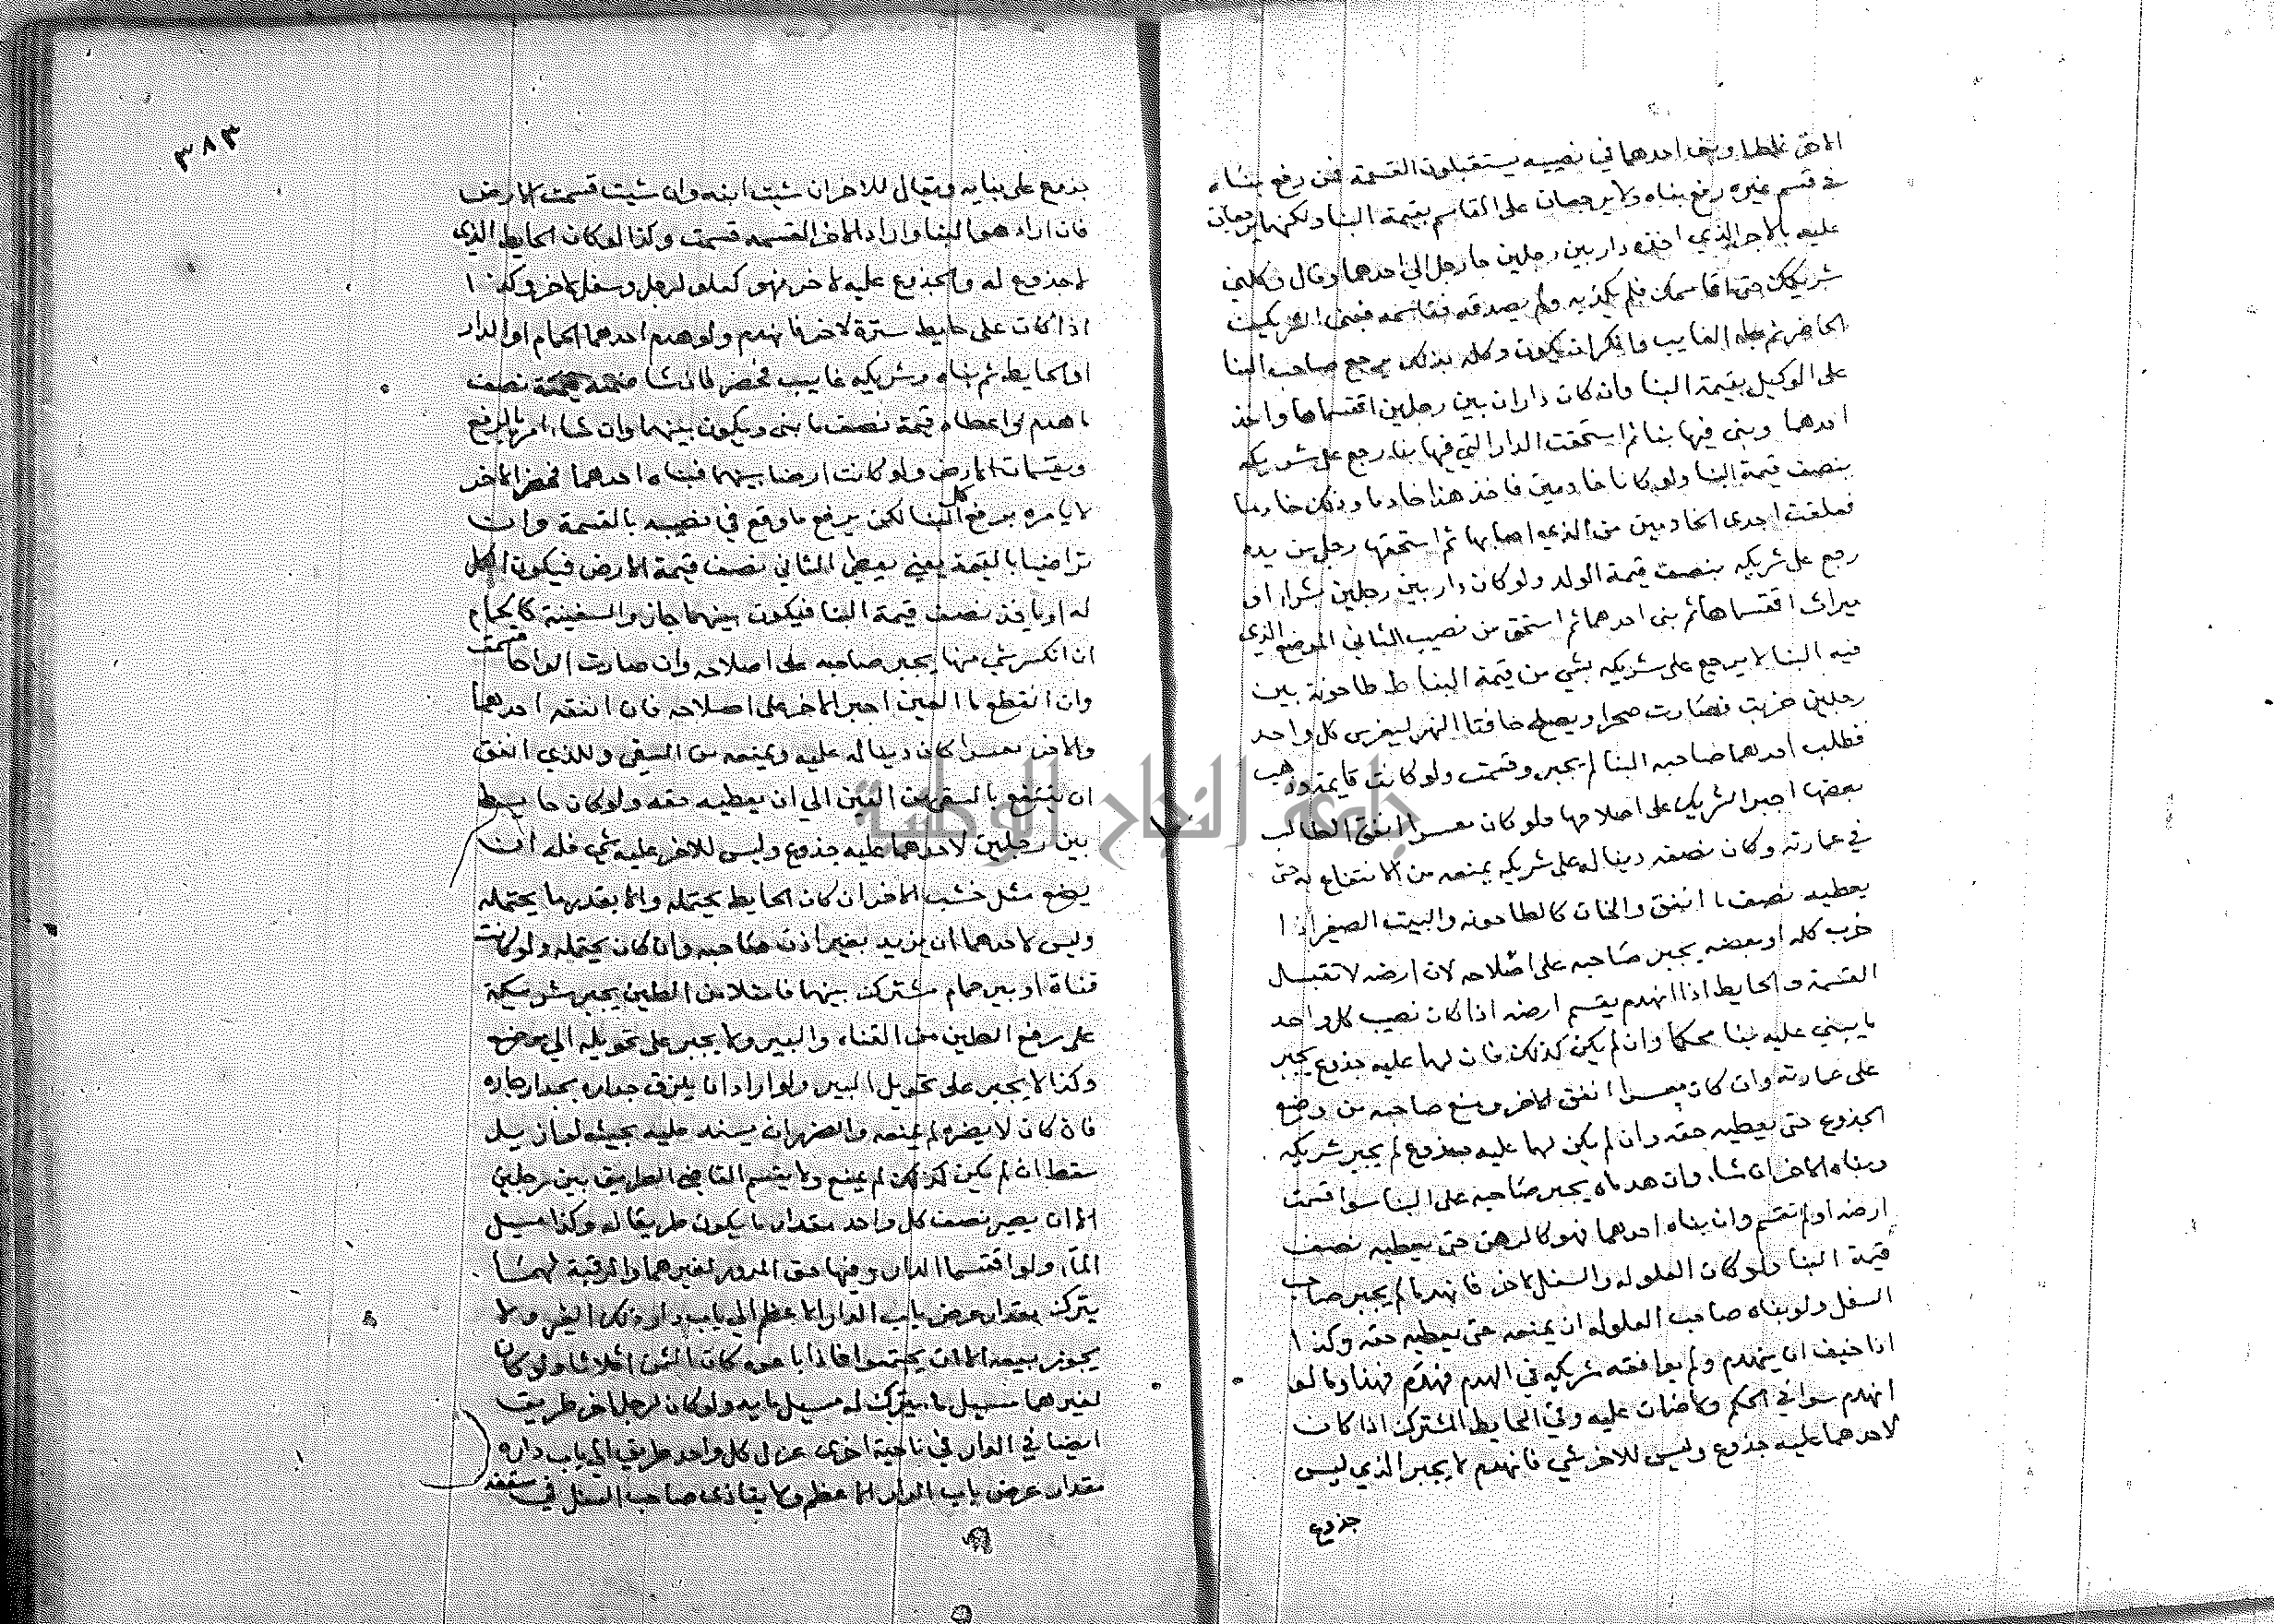 الاخر غلطا وبنى احدهما في نصيبه يستقبلون القسمة فمن رفع بناه
في قسم غيره رفع بناه ولا يرجعان على القاسم بقيمة البنا ولكنهما يرجعان
عليه بالاجر الذي اخذه دار بين رجلين جا رجل الى احدهما وقال وكلني
شريكك حتى اقاسمك فلم يكذبه ولم يصدقه فقاسمه فبنى الشريك
الحاضر ثم جا الغايب وانكر ان يكون وكله بذلك يرجع صاحب البنا
على الوكيل بقيمة البنا وان كان داران بين رجلين اقتسماها واخذ
احدهما وبنى فيها بنا ثم استحقت الدار التي فيها بناء رجع على شريكه
بنصف قيمة البنا ولو كانا خادمين فاخذ هذا خادما وذلك خادما
فعلقت احدى الخادمين من الذي اصابها ثم استحقها رجل من يده
رجع على شريكه بنصف قيمة الولد ولو كان دار بين رجلين بشراء او
ميراث اقتسماها ثم بنى احدهما ثم استحق من نصيب الثاني الموضع الذي
فيه البنا لا يرجع على شريكه بشي من قيمة البنا ط طاحونة بين
رجلين خربت فصارت صحرا ويصلح حافتا النهر ليغرس كل واحد
فطلب احدهما صاحبه البنا لم يجبر وقسمت ولو كانت قايمة وذهب
بعضها اجبر الشريك على اصلاحها ولو كان معسرا انفق الطالب
في عمارته وكان نصفه دينا له على شريكه يمنعه من الانتفاع به حتى
يعطيه نصف ما انفق والخان كالطاحونه والبيت الصغير اذا
خرب كله او بعضه يجبر صاحبه على اصلاحه لان ارضه لا تقبل
القسمة والحايط اذا انهدم يقسم ارضه اذا كان نصيب كل واحد
ما يبني عليه بنا محكما وان لم يكن كذلك فان لهما عليه جذوع يجبر
على عمارته وان كان معسرا انفق الاخر ومنع صاحبه من وضع
الجذوع حتى يعطيه حقه وان لم يكن لهما عليه جذوع لم يجبر شريكه
وبناه الاخر ان شا، وان هدماه يجبر صاحبه على البنا سوا قسمت
ارضه او لم تقسم وان بناه احدهما فهو كالرهن حتى يعطيه نصف
قيمة البنا ولو كان العلو له والسفل لاخر فانهدما لم يجبر صاحب
السفل ولو بناه صاحب العلو له ان يمنعه حتى يعطيه حقه وكذا
اذا خيف ان ينهدم ولم يوافقه شريكه في الهدم فهدم فهذا وما لو
انهدم سوا في الحكم ولا ضمان عليه وفي الحايط المشترك اذا كان
لاحدهما عليه جذوع وليس للاخر شي فانهدم لا يجبر الذي ليس
جذوع
٣٨٣
بذمع على بنايه ويقال للاخر ان شيت ابنه وان شيت قسمت الارض
فان اراد هو البنا واراد الاخر القسمه قسمت وكذا لو كان الحايط الذي
لا جذوع له والجذوع عليه لاخر فهو كعلو لرجل وسفل لاخر وكذا
اذا كان على حايط سترة لاخر فانهدم ولو هدم احدهما الحمام او الدار
او الحايط ثم بناه وشريكه غايب فحضر فان شا قيمة نصف
ما هدم او اعطاه قيمة نصف ما بنى ويكون بينهما وان شاء امره بالرفع
ويقسمان الارض ولو كانت ارضا بينهما فبناه احدهما فحضر الاخر
لا يامره برفع كل البنا لكن يرفع ما وقع في نصيبه بالقسمة وان
تراضيا بالقيمة يعني يعطي الثاني نصف قيمة الارض فيكون الكل
له او ياخذ نصف قيمة البنا فيكون بينهما جاز والسفينة كالحمام
ان انكسر شي منها يجبر صاحبه على اصلاحه وان صارت الواحا قسمت
وان انقطع ما العين اجبر الاخر على اصلاحه فان انفقه احدهما
والاخر معسرا كان دينا له عليه ويمنعه من السقي وللذي انفق
ان ينتفع بالسقي من العين الى ان يعطيه حقه ولو كان حايط
بين رجلين لاحدهما عليه جذوع وليس للاخر عليه شي فله ان
يضع مثل خشب الاخر ان كان الحايط يحتمله والا بقدر ما يحتمله
وليس لاحدهما ان يزيد بغير اذن صاحبه وان كان يحتمله ولو كانت
قناة او بير حمام مشترك بينهما فامتلا من الطين يجبر شريكه
على رفع الطين من القناه والبير ولا يجبر على تحويله الى موضع
وكذا لا يجبر على تحويل البير ولو اراد ان يلزق جداره بجدار جاره
فان كان لا يضره لم يمنعه والضرر ان يسند عليه بحيث لو ازيل
سقط ان لم يكن كذلك لم يمنع ولا يقسم القاضي الطريق بين رجلين
الا ان يصير نصف كل واحد مقدار ما يكون طريقا له وكذا مسيل
الماء ولو اقتسما الدار وفيها حق المرور لغيرهما والرقبة لهما
يترك مقدار عرض باب الدار الاعظم الى باب دار ذلك الغير ولا
يجوز بيعه الا ان يجتمعوا فاذا باعوه كان الثمن اثلاثا ولو كان
لغيرهما مسيل ما يترك له مسيل مايه ولو كان لرجل اخر طريق
ايضا في الدار في ناحية اخرى عزل كل واحد طريق الى باب داره
مقدار عرض باب الدار الاعظم ولا يتاذى صاحب السفل في سقفه
جامعة النجاح الوطنية